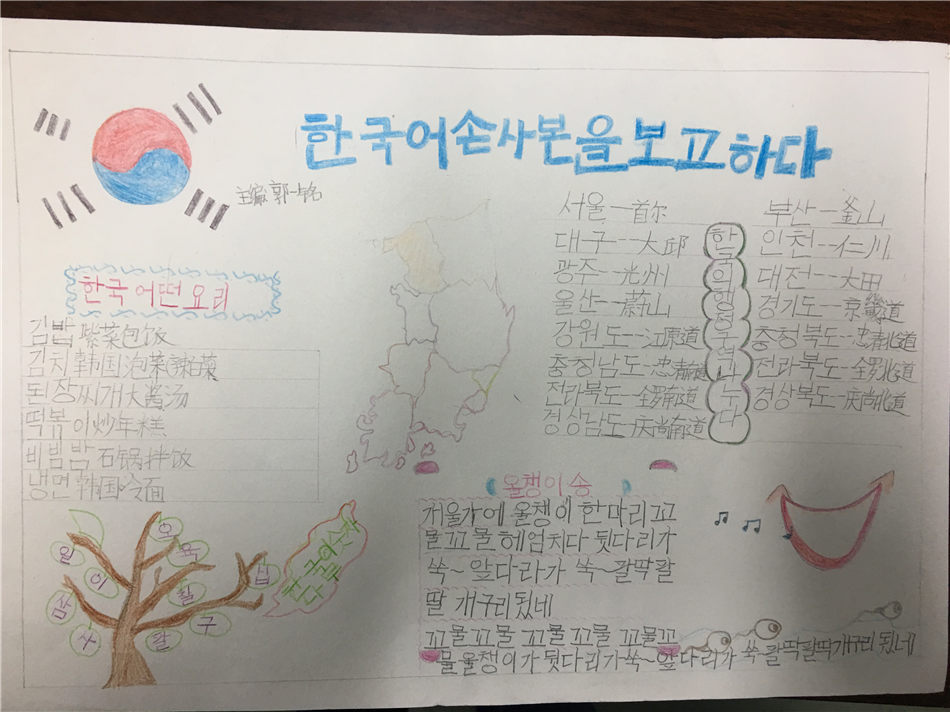 한국어손사본을보고하다
主编:郭一铭
서울一首尔
부산一釜山
대구--大邱
인천--仁川
광주-光州
대전--大田
울산-蔚山
경기도-京畿道
강원도-江原道
충청북도-忠清北道
충청남도-忠清南道
전라북도-全罗北道
전라북도-全罗南道
경상북도-庆尚北道
경상남도-庆尚南道
한국의행정구역나누다
한국어떤요리
김밥紫菜包饭
김치韩国泡菜(辣白菜
된장찌개大酱汤
떡볶이炒年糕
비빔밥石锅拌饭
냉면韩国冷面
일
이
삼
사
오
육
칠
팔
구
십
올챙이송
개울가에 올챙이 한마리꼬
물꼬물 헤엄치다 뒷다리가
쑥~앞다라가 쑥~팔딱팔
딸 개구리됬네
꼬물꼬물 꼬물꼬물 꼬물꼬
물올챙이가뒷다리가쑥~앞다리가 쑥~팔딱팔딱개구리됬네